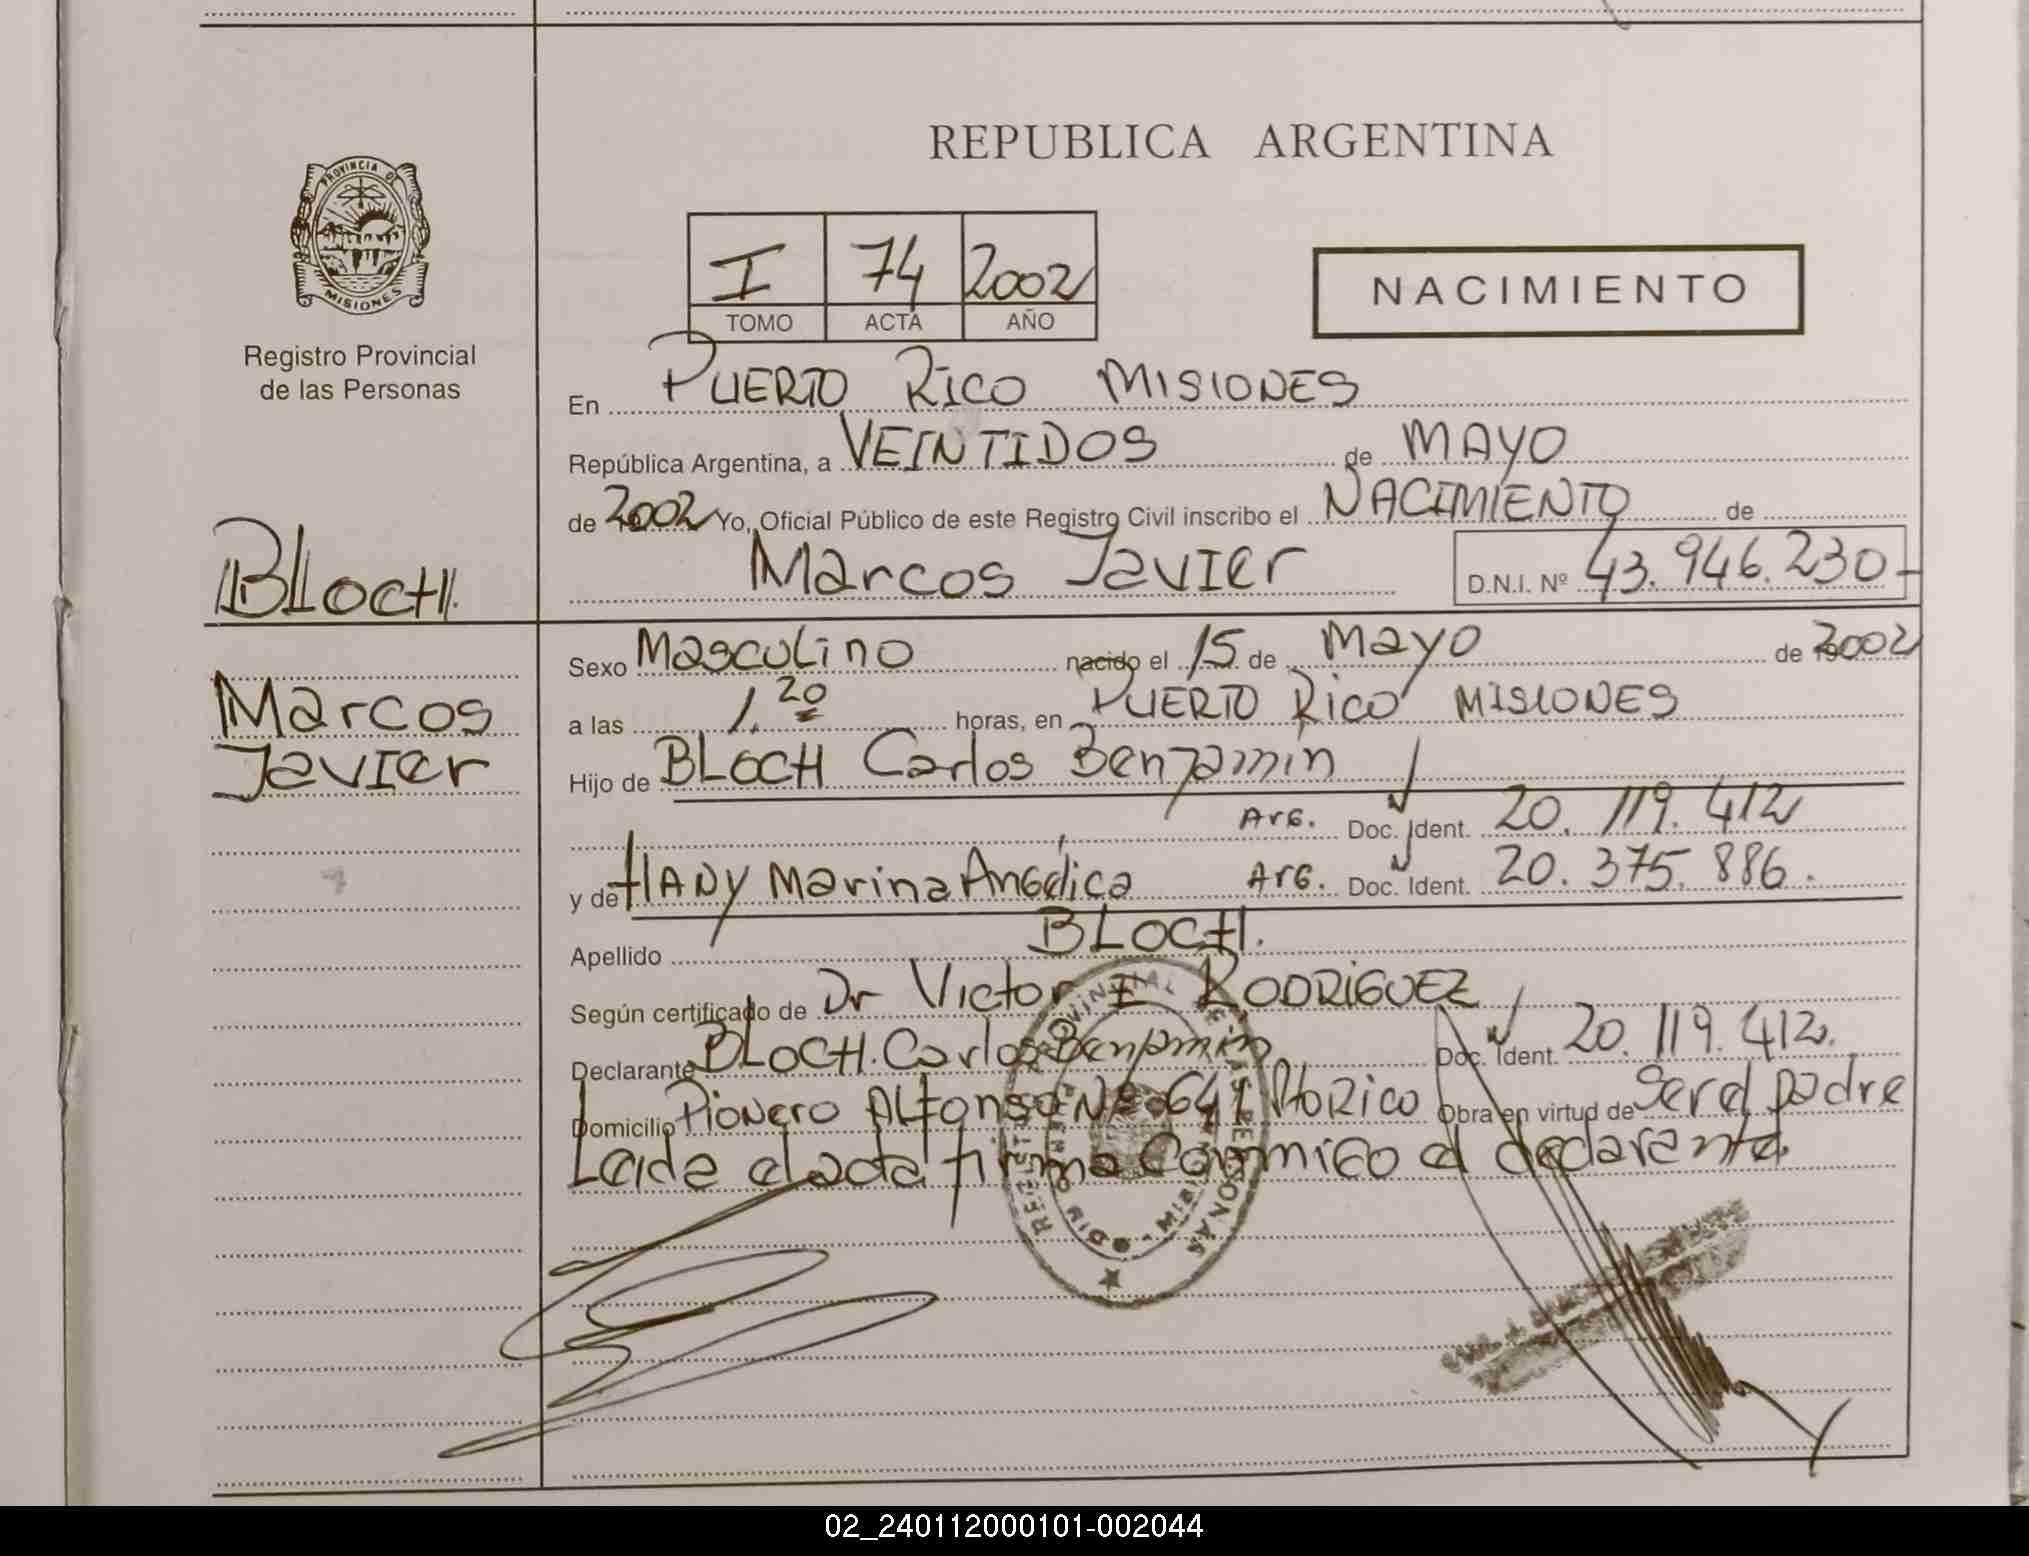 REPUBLICA ARGENTINA
PROVINCIA DE
MISIONES
Registro Provincial
de las Personas
I 74 2002
TOMO ACTA AÑO
NACIMIENTO
En PUERTO RICO MISIONES
República Argentina, a VEINTIDOS de MAYO
de 2002 Yo, Oficial Público de este Registro Civil inscribo el NACIMIENTO de
BLOCH.
Marcos Javier D.N.I. Nº 43.946.230-
Marcos
Javier
Sexo Masculino nacido el 15 de Mayo de 2002
a las 1.20 horas, en PUERTO Rico MISIONES
Hijo de BLOCH Carlos Benjamin
Arg. Doc. Ident. 20.119.412
y de HANY Marina Angélica Arg. Doc. Ident. 20.375.886.
Apellido BLOCH.
Según certificado de Dr Victor E RODRIGUEZ
Declarante BLOCH. Carlos Benjamin Doc. Ident. 20.119.412.
Domicilio Pionero Alfonso Nº 641 Pto Rico Obra en virtud de ser el padre
Leida el acta firma Conmigo el declarante.
02_240112000101-002044